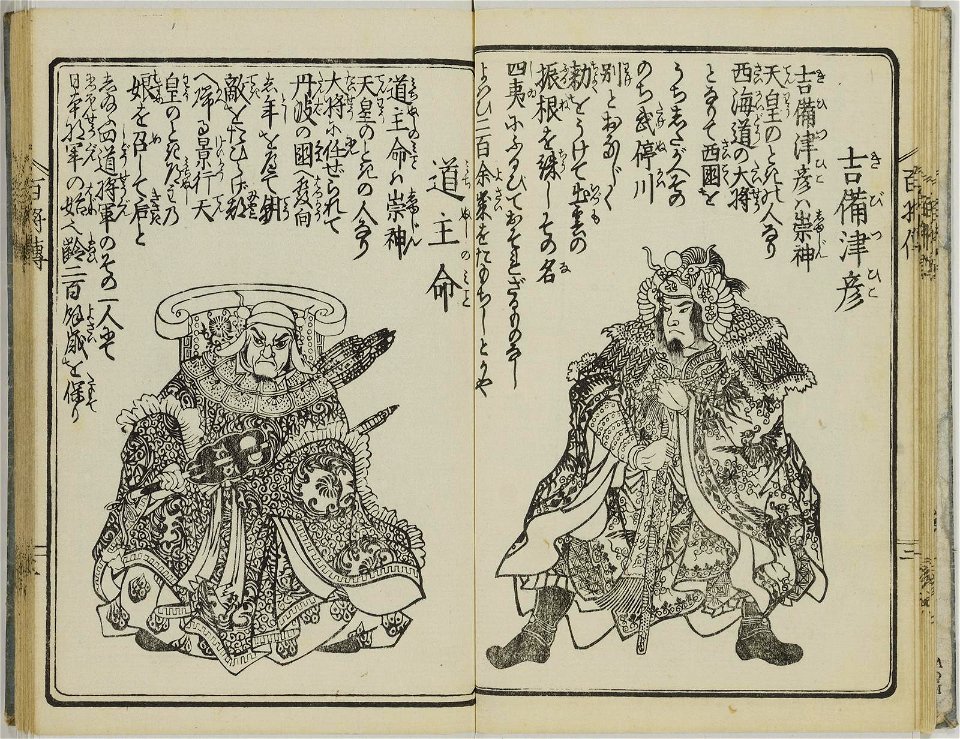 吉備津彦
吉備津彦ハ崇神
天皇のとき乃人なり
西海道の大将
となりて西國を
うちしたがへその
のち武渟川
別とおなじく
勅をうけて出雲の
振根を誅しその名
四夷にふるひておそれざるものなし
よはひ二百余歳をたもちしとかや
道主命
道主命ハ崇神
天皇のときの人なり
大将に任ぜられて
丹波の國へ發向
し年を歴て朝
敵をたひらげ都
へ帰る景行天
皇のとき
娘を召して后と
四道将軍のその一人にて
日本将軍の始 齢二百余歳を保り
百将傳